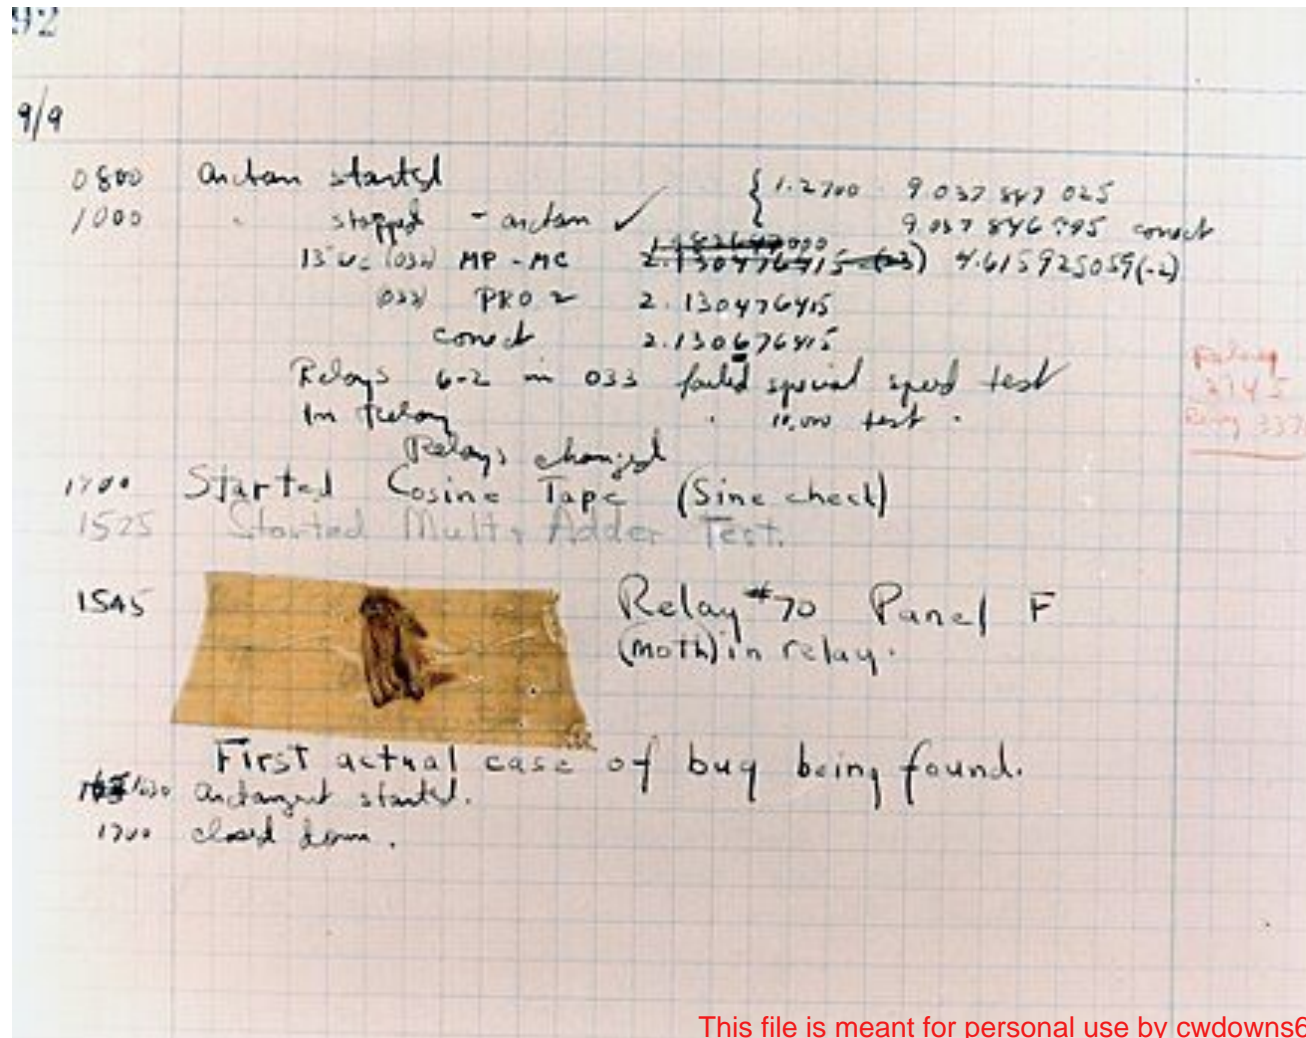 92
9/9
0800 Antan started
1000 " stopped - antan ✓ { 1.2700 9.037 847 025
9.037 846 995 correct
13"uc (032) MP - MC 2.130476415 (-3) 4.615925059(-2)
(033) PRO 2 2.130476415
correct 2.130676415
Relays 6-2 in 033 failed special speed test
In Relay " 10,000 test "
Relays changed
1700 Started Cosine Tape (Sine check)
1525 Started Mult + Adder Test.
1545 Relay #70 Panel F
(moth) in relay.
First actual case of bug being found.
1630 Antangent started.
1700 closed down.
Relay
2145
Relay 337
This file is meant for personal use by cwdowns6